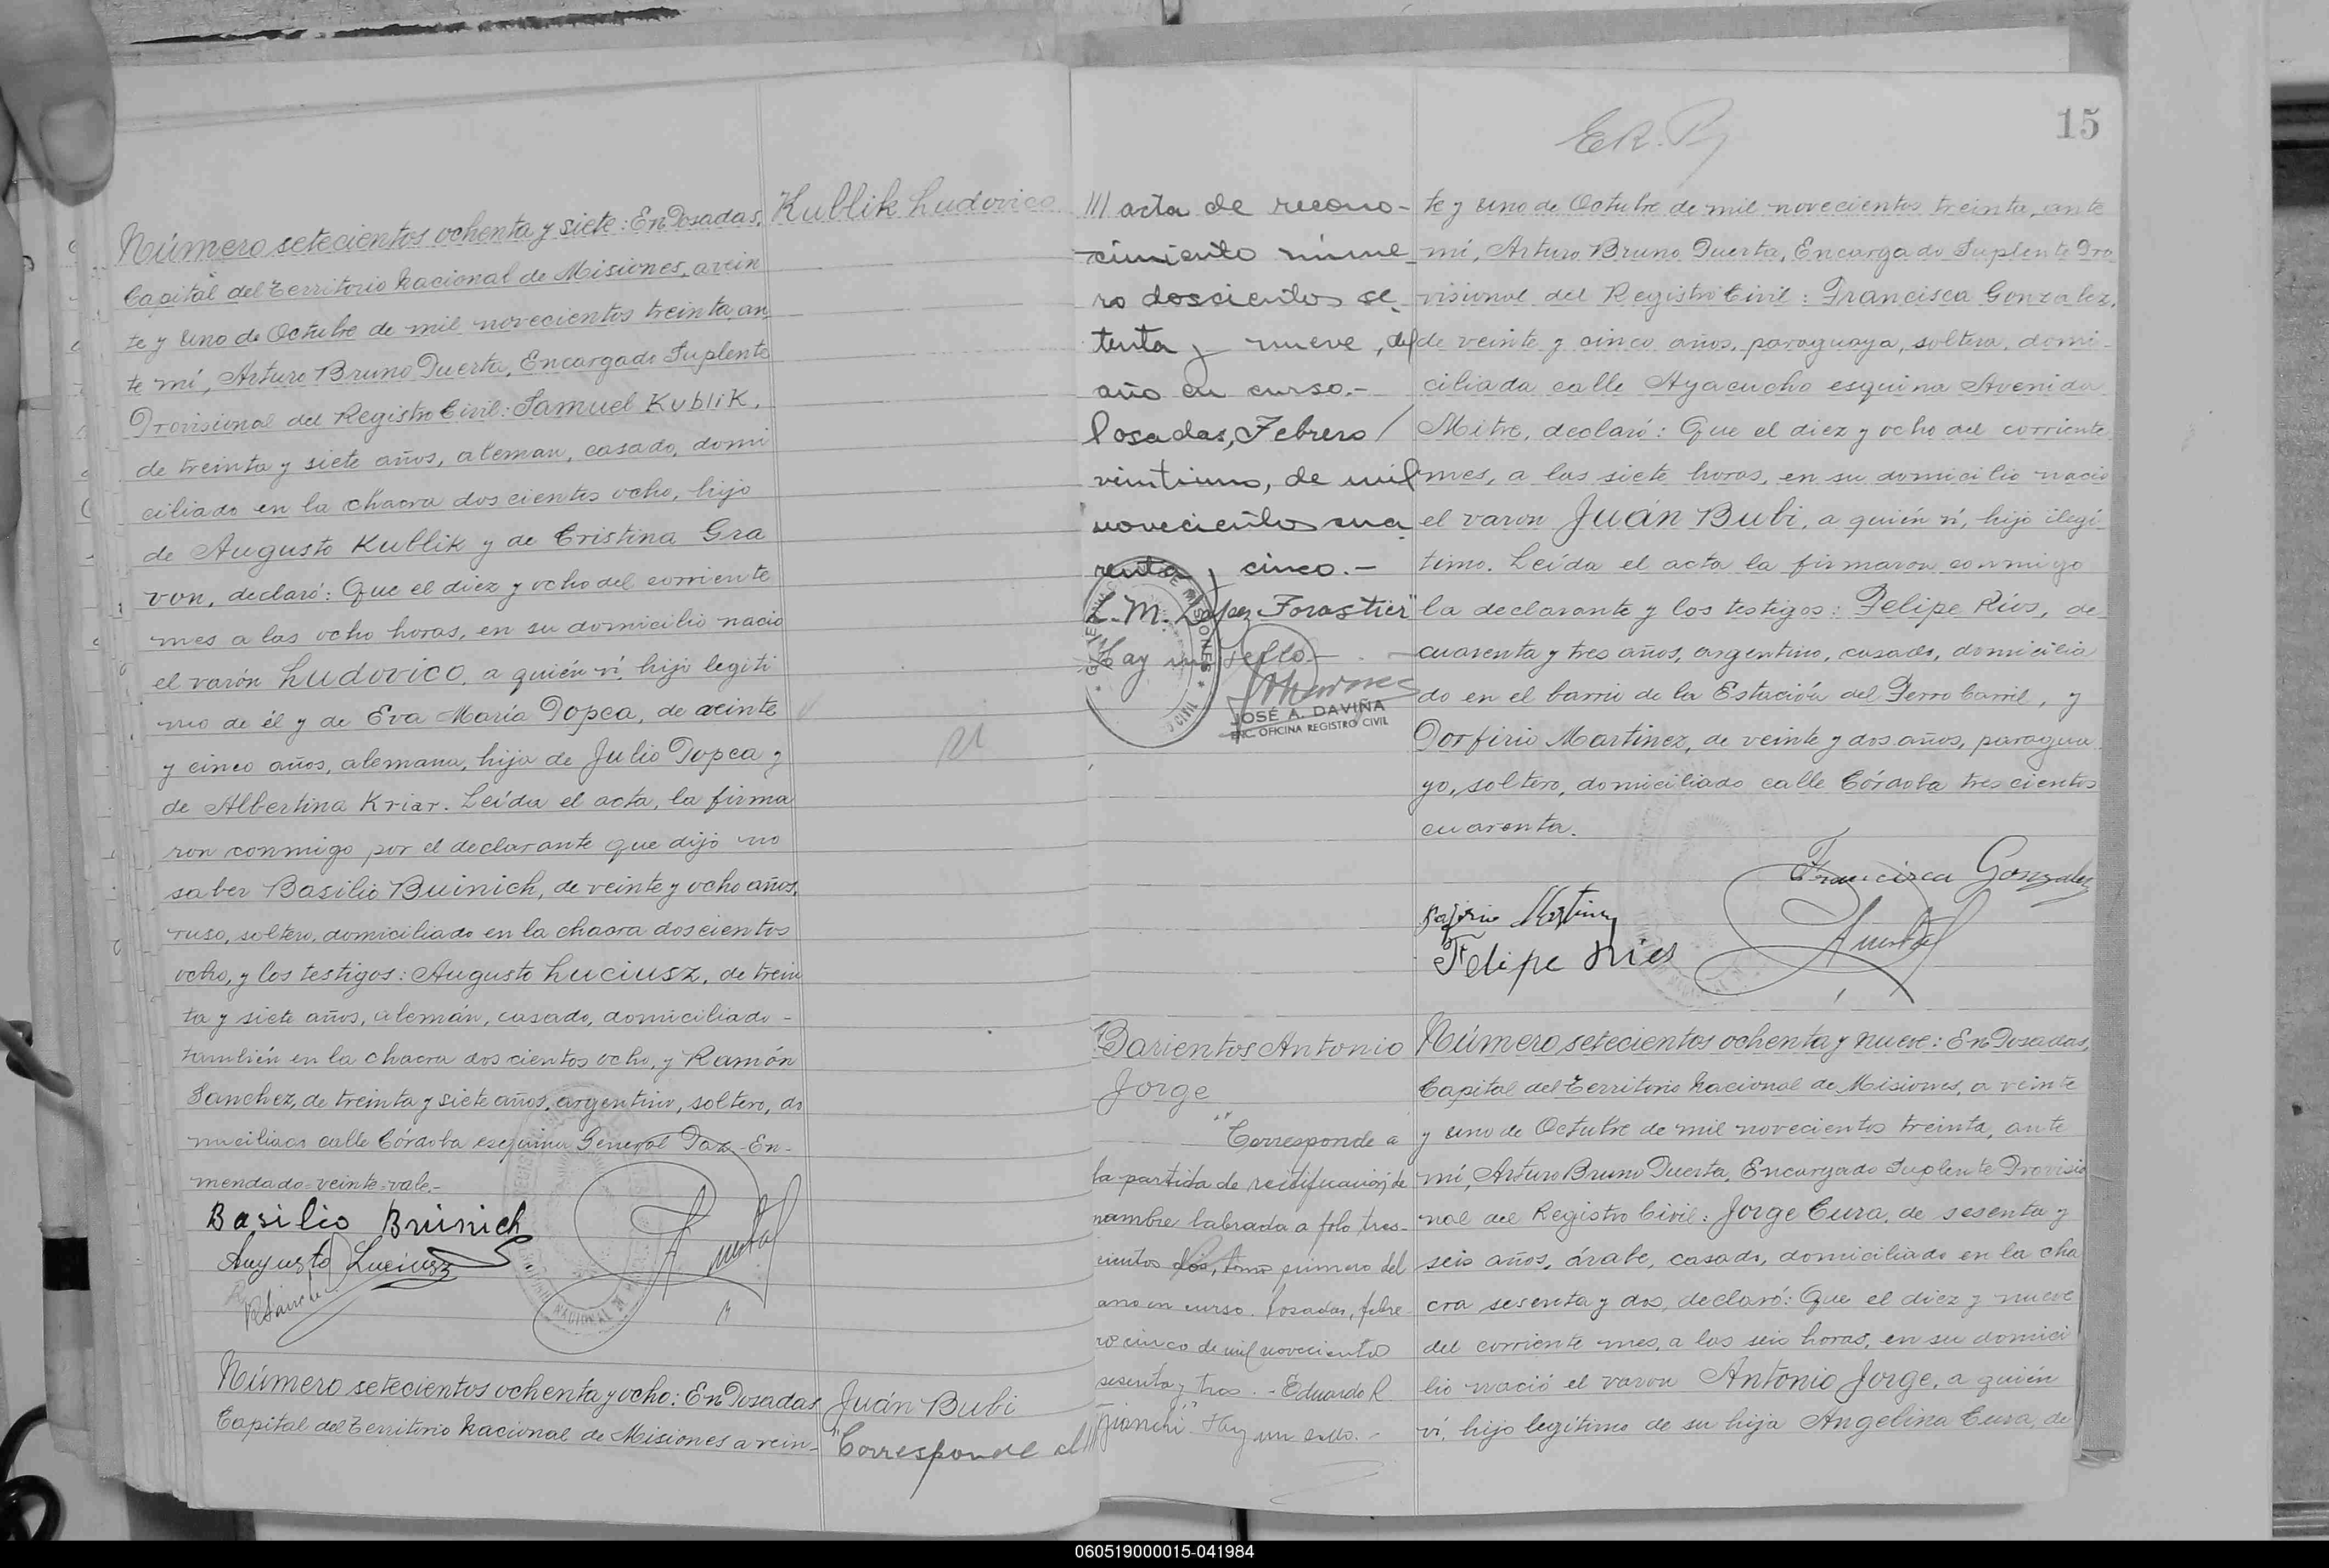 Kublik Ludovico
Número setecientos ochenta y siete: En Posadas,
Capital del Territorio Nacional de Misiones, a vein
te y uno de Octubre de mil novecientos treinta, an
te mí, Arturo Bruno Puerta, Encargado Suplente
Provisional del Registro Civil: Samuel Kublik,
de treinta y siete años, aleman, casado, domi
ciliado en la chacra doscientos ocho, hijo
de Augusto Kublik y de Cristina Gra
von, declaró: Que el diez y ocho del corriente
mes a las ocho horas, en su domicilio nació
el varón Ludovico, a quién ví, hijo legíti
mo de él y de Eva María Popca, de veinte
y cinco años, alemana, hija de Julio Popca y
de Albertina Kriar. Leída el acta, la firma
ron conmigo por el declarante que dijo no
saber Basilio Buinich, de veinte y ocho años,
ruso, soltero, domiciliado en la chacra doscientos
ocho, y los testigos: Augusto Luciusz, de trein
ta y siete años, alemán, casado, domiciliado -
también en la chacra doscientos ocho, y Ramón
Sanchez, de treinta y siete años, argentino, soltero, do
miciliado calle Córdoba esquina General Paz - En-
mendado=veinte=vale.-
Basilio Brinich
Augusto Luciusz
RSanchez
A Puerta
Número setecientos ochenta y ocho: En Posadas
Capital del Territorio Nacional de Misiones a vein-
Juán Bubi
"Corresponde al///
15
/// acta de recono-
cimiento núme
ro doscientos se-
tenta y nueve, del
año en curso.-
Posadas, Febrero /
veintiuno, de mil
novecientos cua
renta y cinco.-
L. M. López Forastier"
Hay un sello.-
JOSÉ A. DAVIÑA
ENC. OFICINA REGISTRO CIVIL
te y uno de Octubre de mil novecientos treinta, ante
mí, Arturo Bruno Puerta, Encargado Suplente Pro
visional del Registro Civil: Francisca Gonzalez,
de veinte y cinco años, paraguaya, soltera, domi-
ciliada calle Ayacucho esquina Avenida
Mitre, declaró: Que el diez y ocho del corriente
mes, a las siete horas, en su domicilio nació
el varon Juán Bubi, a quién ví, hijo ilegí
timo. Leída el acta la firmaron conmigo
la declarante y los testigos: Felipe Ríos, de
cuarenta y tres años, argentino, casado, domicilia
do en el barrio de la Estación del Ferro Carril, y
Porfirio Martinez, de veinte y dos años, paragua
yo, soltero, domiciliado calle Córdoba trescientos
cuarenta.
Francisca Gonzalez
Martinez
Felipe Ríos
A Puerta
Barientos Antonio
Jorge
"Corresponde a
la partida de rectificación de
nombre labrada a folo tres-
cientos dos, tomo primero del
año en curso. Posadas, febre-
ro cinco de mil novecientos
sesenta y tres. - Eduardo R.
Hay un sello.-
Número setecientos ochenta y nueve: En Posadas,
Capital del Territorio Nacional de Misiones, a veinte
y uno de Octubre de mil novecientos treinta, ante
mí, Arturo Bruno Puerta, Encargado Suplente Provisio
nal del Registro Civil: Jorge Cura, de sesenta y
seis años, árabe, casado, domiciliado en la cha
cra sesenta y dos, declaró: Que el diez y nueve
del corriente mes, a las seis horas, en su domici
lio nació el varon Antonio Jorge, a quién
ví, hijo legítimo de su hija Angelina Cura, de
060519000015-041984